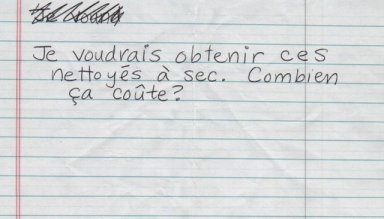 Je voudrais obtenir ces
nettoyés à sec. Combien
ça coûte?